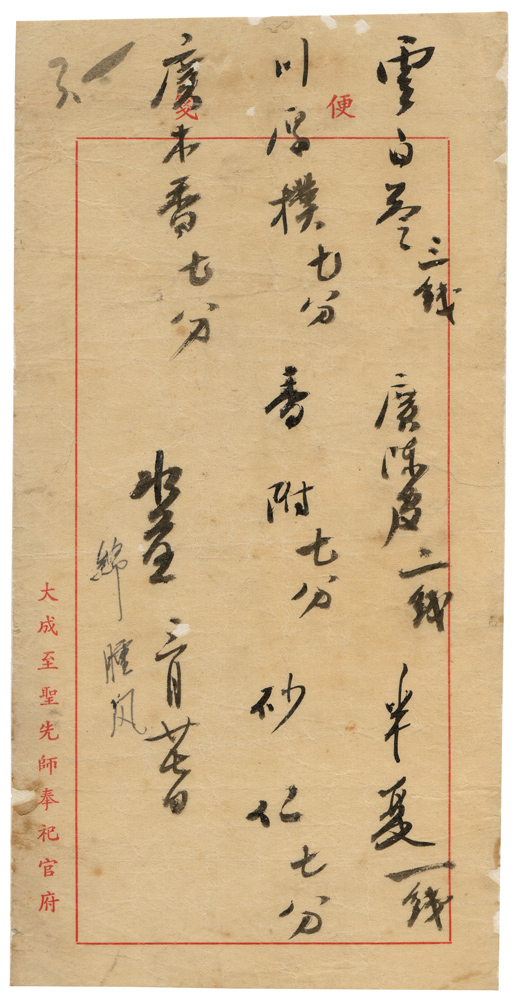 便
笺
雲白苓三錢 廣陳皮二錢 半夏一錢
川厚樸七分 香附七分 砂仁七分
廣木香七分
水煎 三月廿七日
大成至聖先師奉祀官府